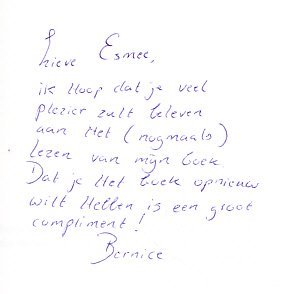 Lieve Esmee,
ik Hoop dat je veel
plezier zult beleven
aan Het (nogmaals)
lezen van mijn boek
Dat je Het boek opnieuw
wilt Hebben is een groot
compliment!
Bernice